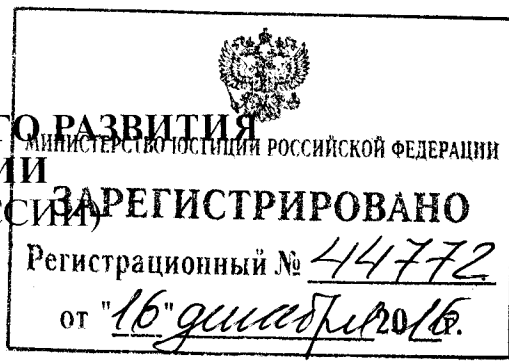 ГО РАЗВИТИЯ
МИНИСТЕРСТВО ЮСТИЦИИ РОССИЙСКОЙ ФЕДЕРАЦИИ
ИИ
ССИИ)
ЗАРЕГИСТРИРОВАНО
Регистрационный № 44772
от "16" декабря 2016.